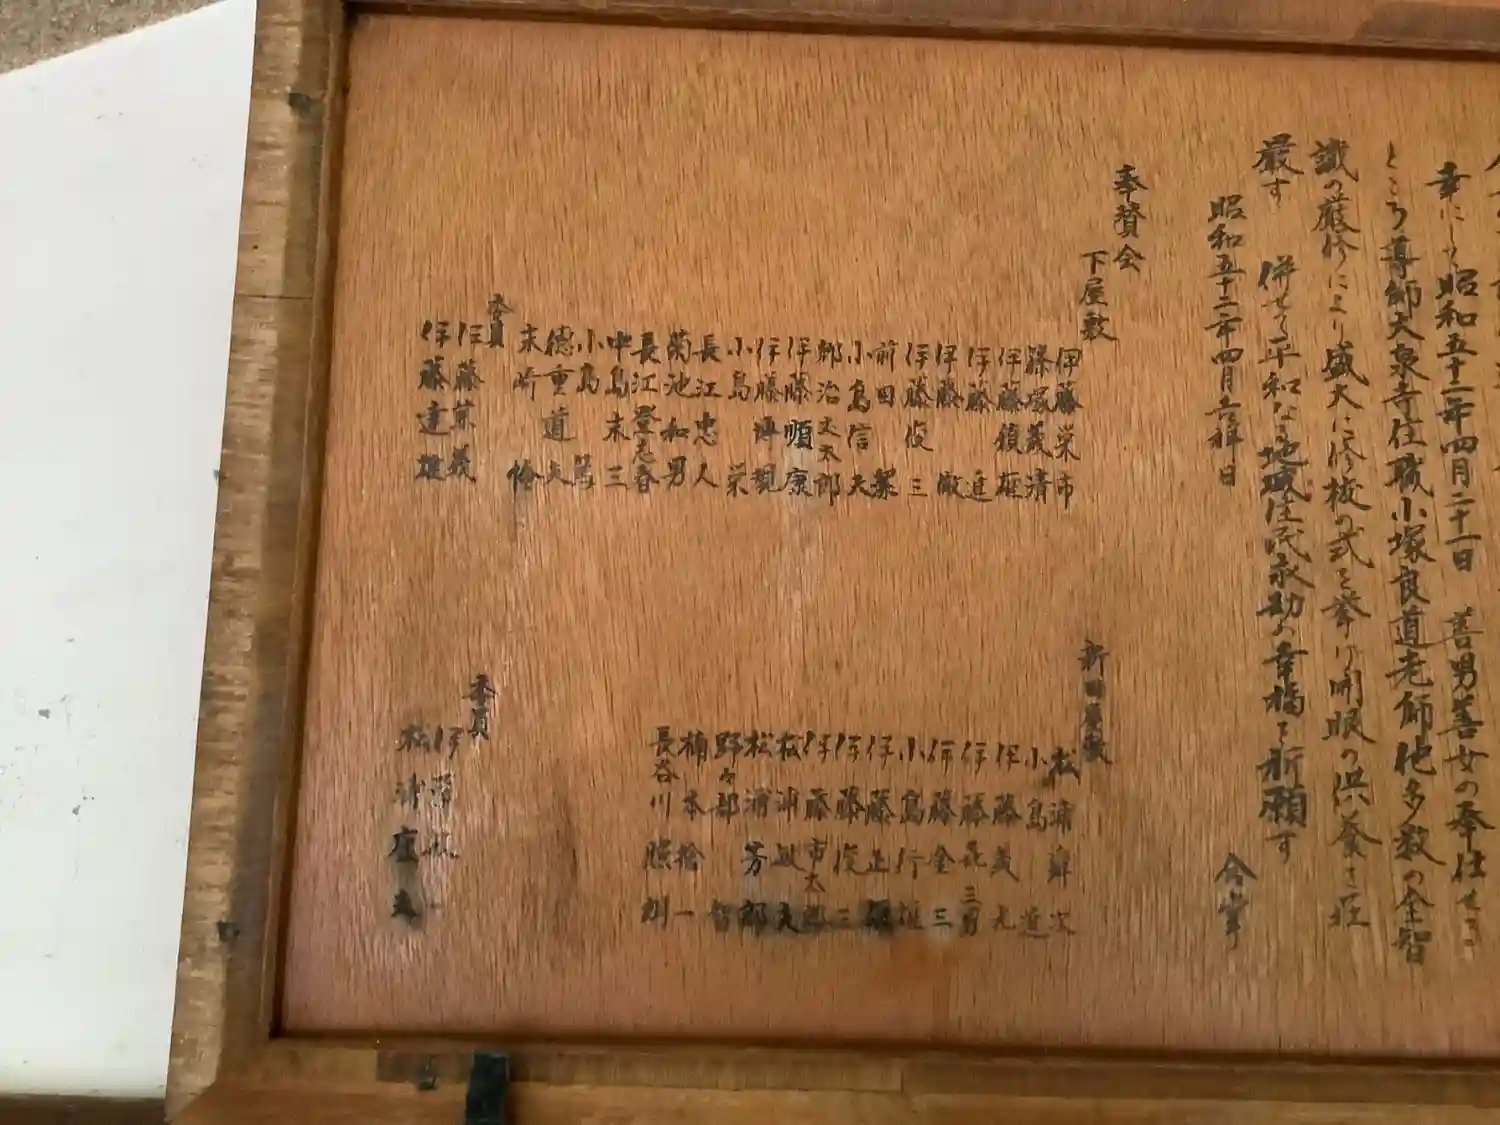 幸にして昭和五十二年四月二十一日 善男善女の奉仕せる
ところ導師大泉寺住職小塚良道老師他多数の全智
識の厳修により盛大に修祓の式を挙げ開眼の供養を荘
厳す 併せて平和なる地域住民永劫の幸福を祈願す
昭和五十二年四月吉祥日
奉賛会
下屋敷
伊藤栄市
篠塚義清
伊藤禎雄
伊藤 進
伊藤 敏
伊藤俊三
前田 繁
小島信夫
郡治丈太郎
伊藤順康
伊藤博親
小島 栄
長江忠人
菊池和男
長江登志春
中島末三
小島 篤
徳重道夫
末崎 倫
委員
伊藤京義
伊藤達雄
新田屋敷
松浦舜次
小島 道
伊藤義元
伊藤喜三男
伊藤金三
小島行雄
伊藤正雄
伊藤俊三
伊藤市太郎
松浦敏夫
松浦芳郎
野々部 智
楠本捨一
長谷川照別
委員
伊藤 一
松浦 夫